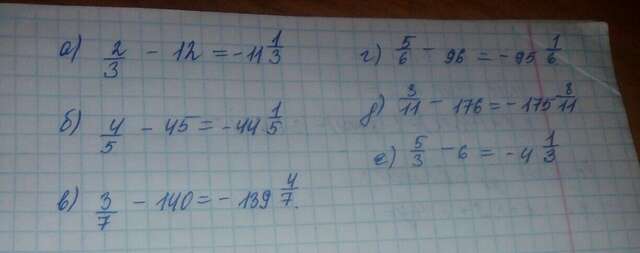 а) 2/3 - 12 = -11 1/3
б) 4/5 - 45 = -44 1/5
в) 3/7 - 140 = - 139 4/7.
г) 5/6 - 96 = -95 1/6
д) 3/11 - 176 = -175 8/11
е) 5/3 - 6 = -4 1/3